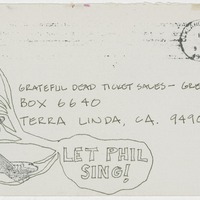 GRATEFUL DEAD TICKET SALES - GRE
BOX 6640
TERRA LINDA, CA. 9490
LET PHIL
SING!